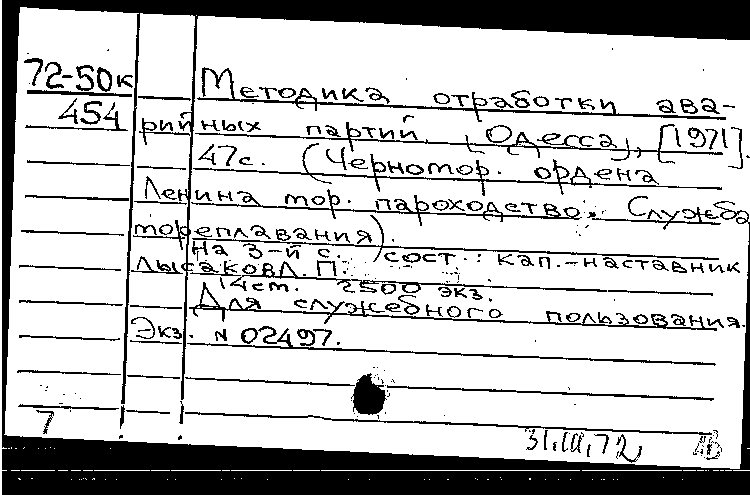 72-50к
454
Методика отработки ава-
рийных партий. [Одесса], [1971].
47с. (Черномор. ордена
Ленина мор. пароходство. Служба
мореплавания).
На 3-й с. сост.: кап.-наставник
Лысаков Л. П.
14см. 2500 экз.
Для служебного пользования.
Экз. N 02497.
7
31.III.72